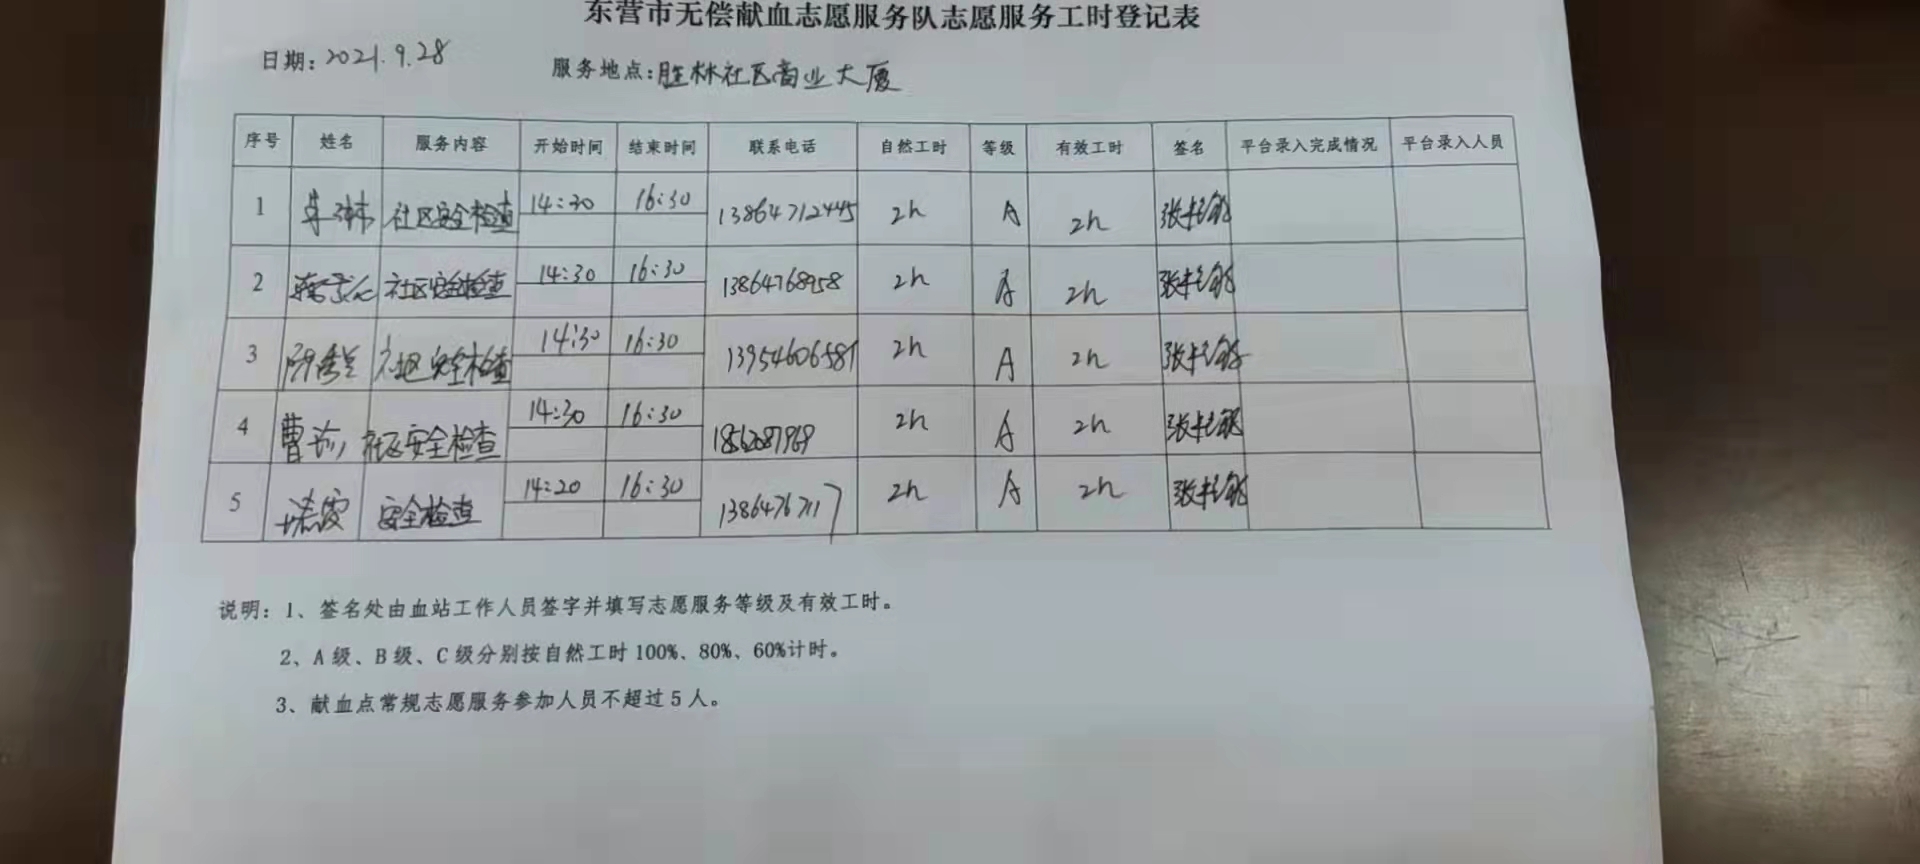 东营市无偿献血志愿服务队志愿服务工时登记表
日期:2021.9.28 服务地点:胜林社区商业大厦
序号 姓名 服务内容 开始时间 结束时间 联系电话 自然工时 等级 有效工时 签名 平台录入完成情况 平台录入人员
1 社区安全检查 14:30 16:30 13864712445 2h A 2h
2 社区安全检查 14:30 16:30 13864768958 2h A 2h
3 社区安全检查 14:30 16:30 13954606581 2h A 2h
4 曹 社区安全检查 14:30 16:30 2h A 2h
5 安全检查 14:20 16:30 2h A 2h
说明:1、签名处由血站工作人员签字并填写志愿服务等级及有效工时。
2、A级、B级、C级分别按自然工时100%、80%、60%计时。
3、献血点常规志愿服务参加人员不超过5人。